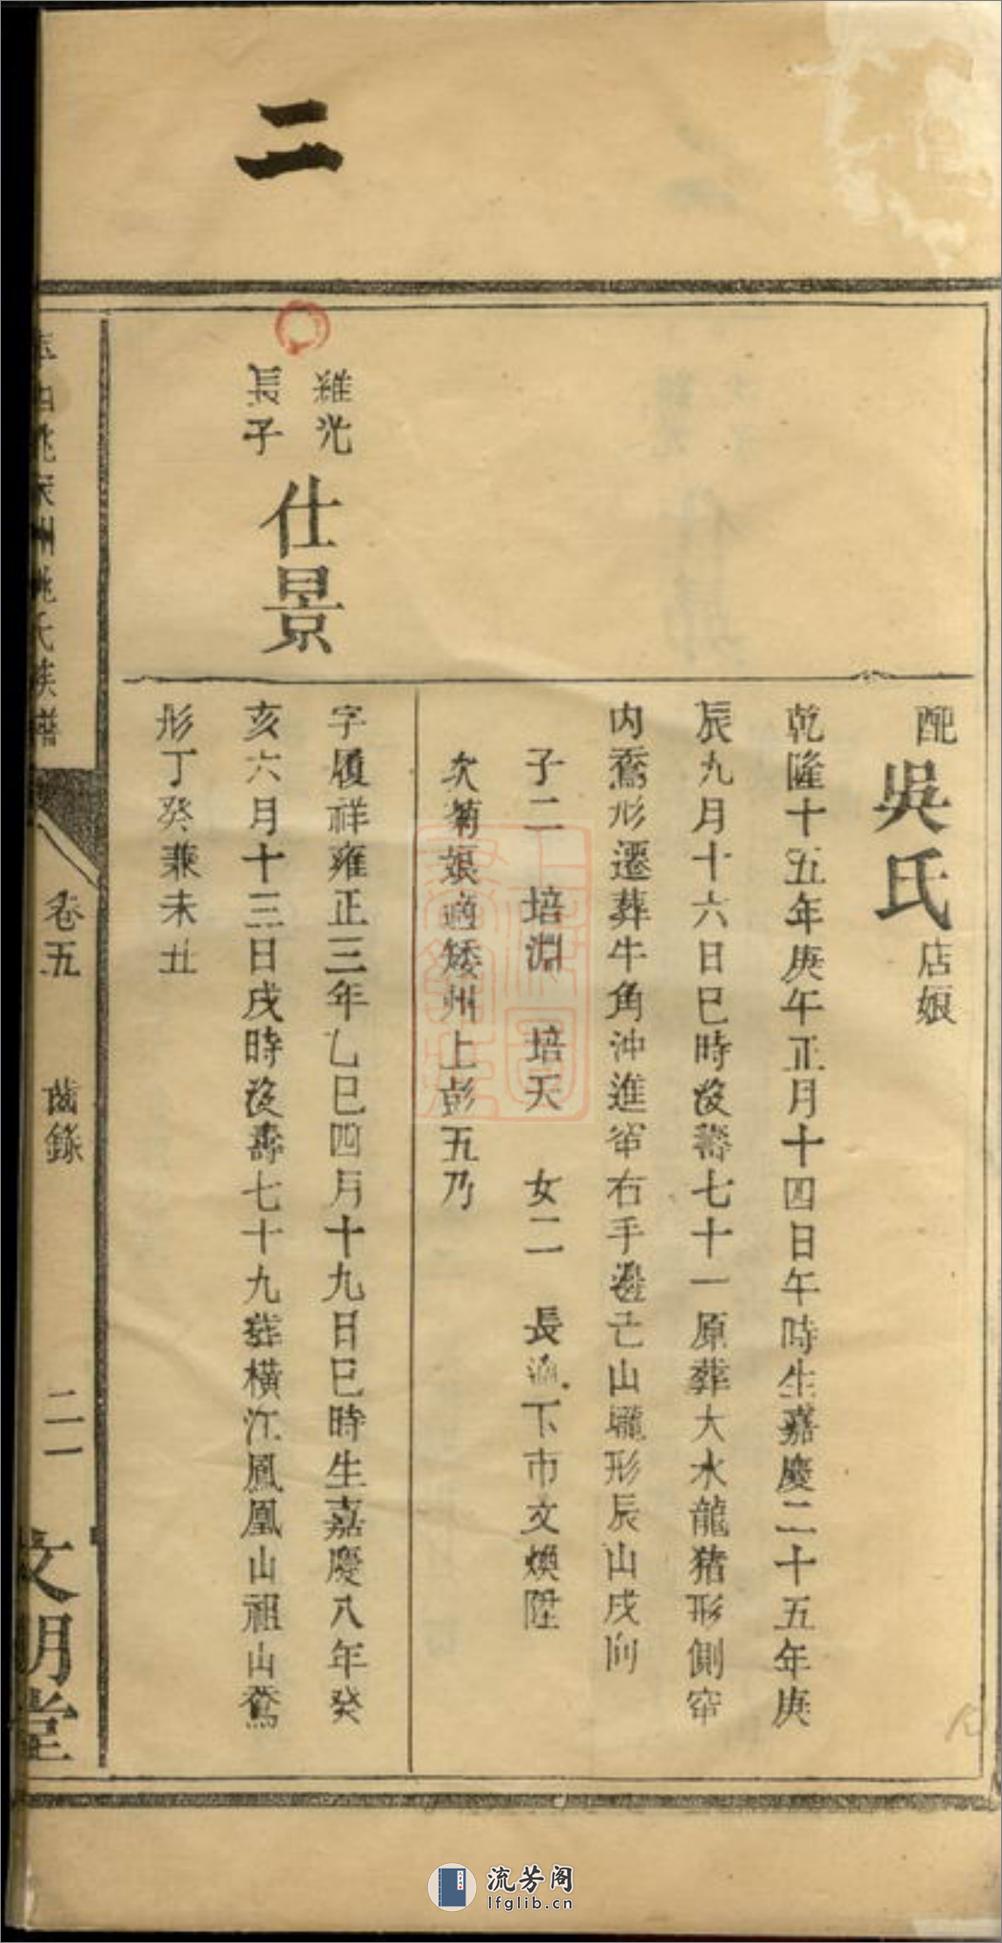 二
配吳氏店娘
乾隆十五年庚午正月十四日午時生嘉慶二十五年庚
辰九月十六日巳時没壽七十一原葬大水龍猪形側窜
内鴦形遷葬牛角沖進窜右手邊亡山壠形辰山戌向
子二 培淵 培天 女二 長適下市文煥陞
次菊娘適矮州上彭五乃
雞光
長子
仕景
字履祥雍正三年乙巳四月十九日巳時生嘉慶八年癸
亥六月十三日戌時没壽七十九葬橫江鳳凰山祖山鴦
形丁癸兼未丑
州姚氏族譜
卷五
齒錄
二一
文明堂
流芳阁
lfglib.cn